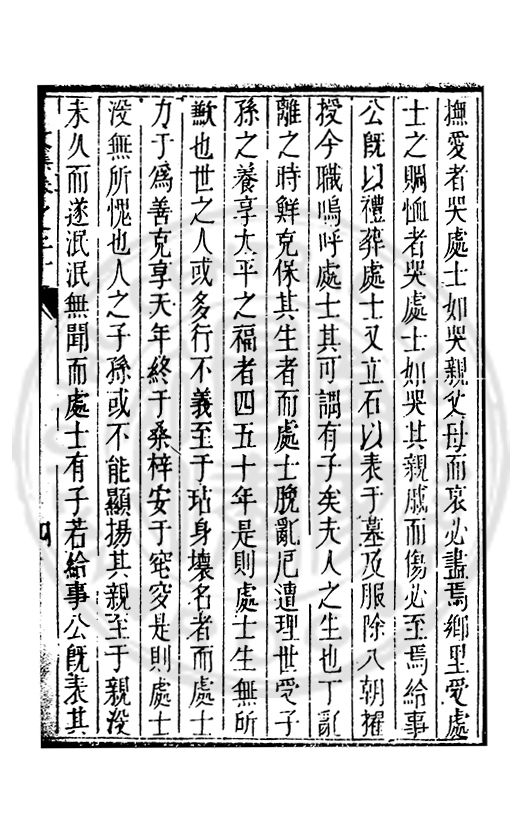 撫愛者哭處士如哭親父母而哀必盡焉鄉里受處
士之賙恤者哭處士如哭其親戚而傷必至焉給事
公旣以禮葬處士又立石以表于墓及服除入朝擢
授今職嗚呼處士其可謂有子矣夫人之生也丁亂
離之時鮮克保其生者而處士脫亂厄遭理世受子
孫之養享太平之福者四五十年是則處士生無所
歉也世之人或多行不義至于玷身壞名者而處士
力于爲善克享天年終于桑梓安于窀穸是則處士
沒無所愧也人之子孫或不能顯揚其親至于親沒
未久而遂泯泯無聞而處士有子若給事公旣表其
四